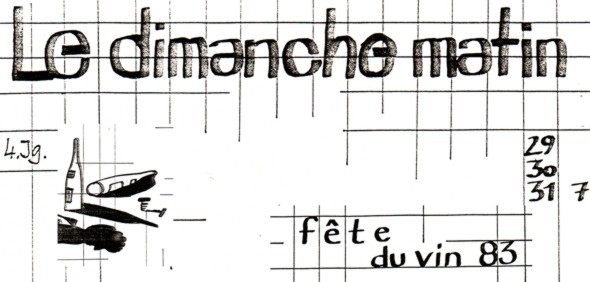 Le dimanche matin
4.Jg.
29
30
31 7
fête
du vin 83